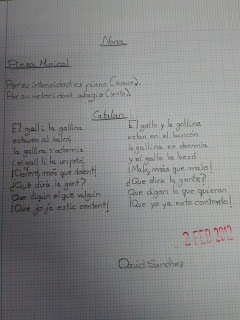 Nana
Pieza Musical
Por su intensidad es piano (suave).
Por su velocidad adagio (lento).
Catalan
El gall i la gallina
estaven al balcó,
la gallina s'adormia
i el gall li fa un petó,
¡Dolent, més que dolent!
¿Què dirà la gent?
Que diguin el que vulguin
¡Que jo ja estic content!
El gallo y la gallina
estan en el bancón
la gallina se dormia
y el gallo la besó
¡Malo, más que malo!
¿Que dira la gente?
Que digan lo que quieran
¡Que yo ya estoy contento!
2 FEB 2012
David Sánchez